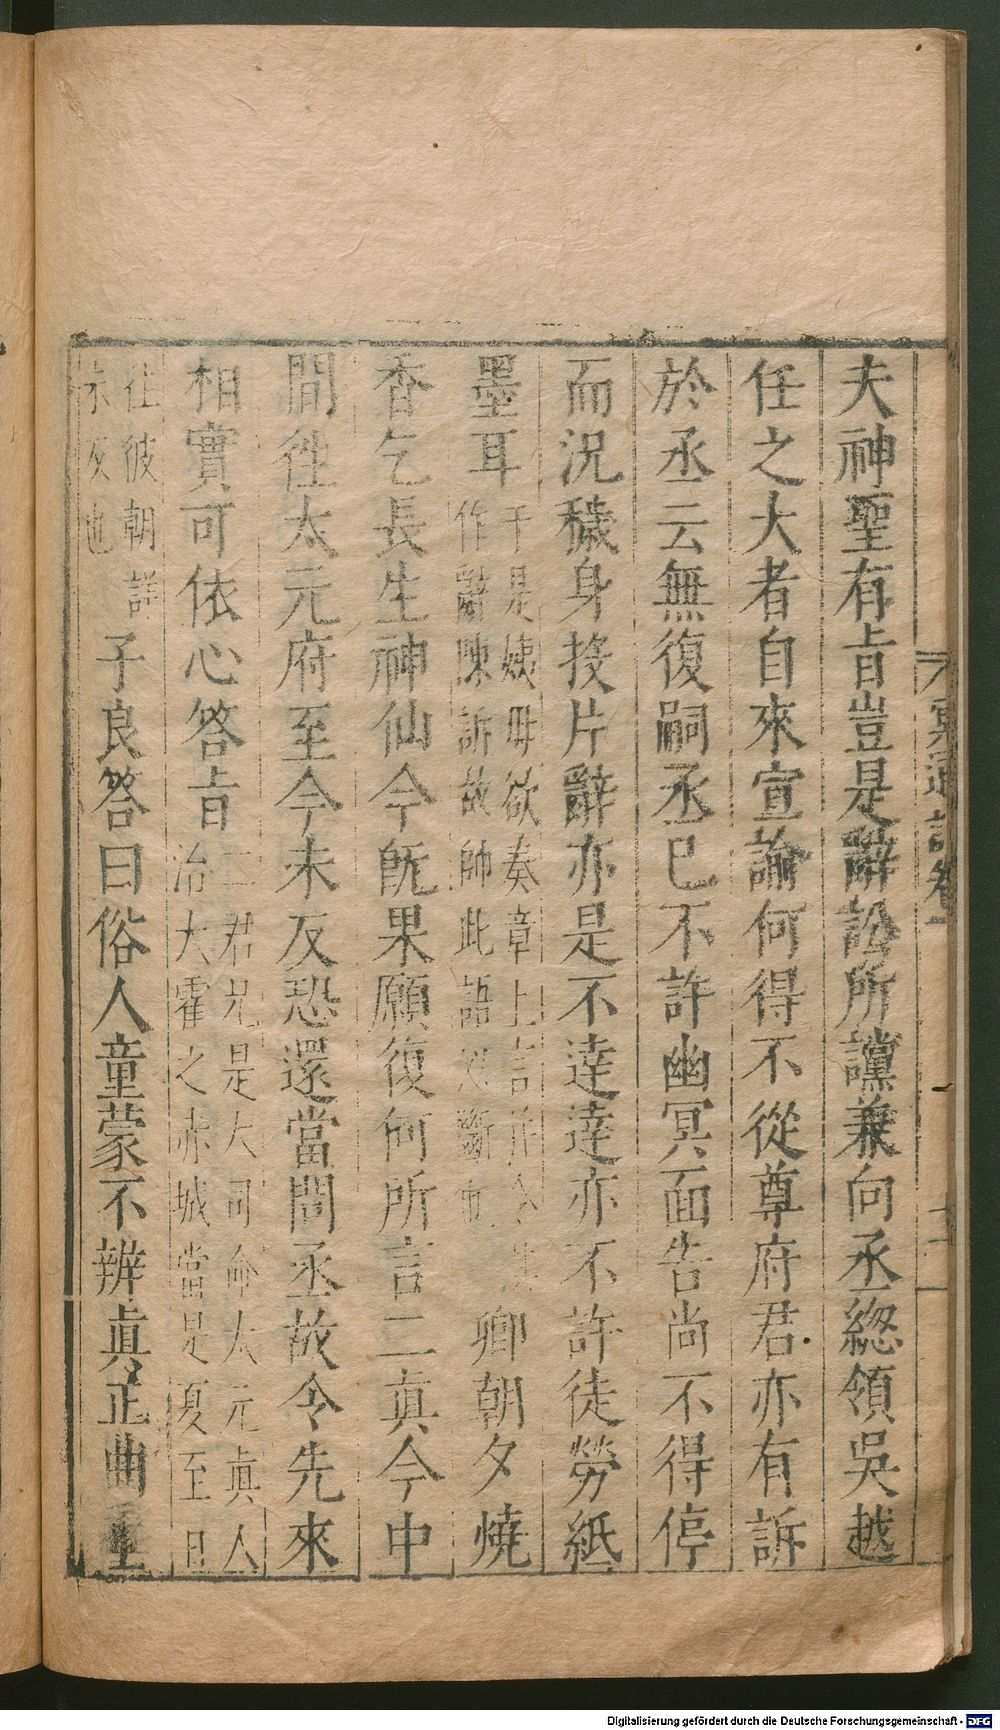 夫神聖有旨豈是辭訟所讜兼向丞緫領吳越
任之大者自來宣諭何得不從尊府君亦有訴
於丞云無復嗣丞已不許幽冥面告尚不得停
而況穢身投片辭亦是不達達亦不許徒勞紙
墨耳
于是姨母欲奏章上言
作辭陳訴故師此語
卿朝夕燒
香乞長生神仙今旣果願復何所言二眞今中
間徃太元府至今未反恐還當問丞故令先來
相實可依心答旨
二君兄是大司命太元眞人
治大霍之赤城當是夏至日
往彼朝詳
未反也
子良答曰俗人童蒙不辨眞正曲
冥通記卷一
Digitalisierung gefördert durch die Deutsche Forschungsgemeinschaft - DFG